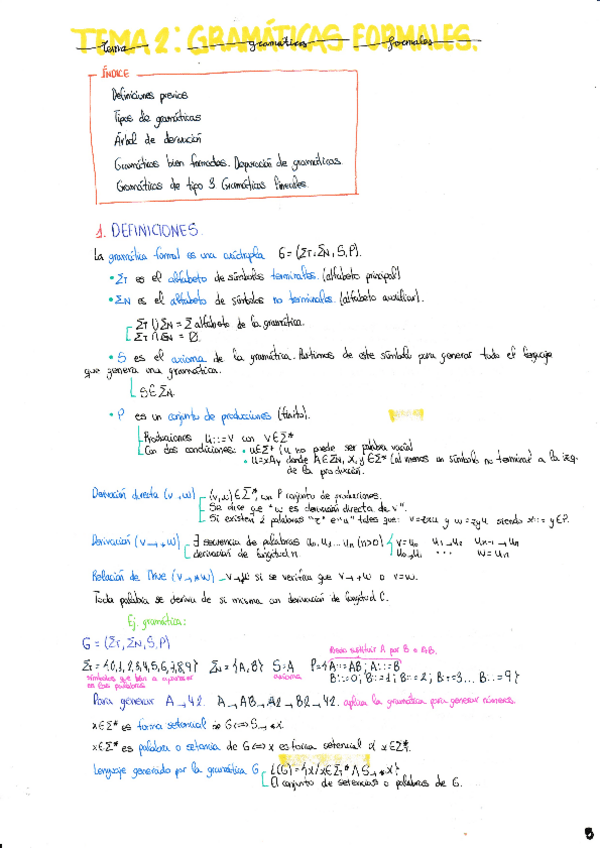 TEMA 2: GRAMÁTICAS FORMALES.
Tema gramáticas formales
ÍNDICE
Definiciones previas
Tipos de gramáticas
Árbol de derivación
Gramáticas bien formadas. Depuración de gramáticas
Gramáticas de tipo 3 Gramáticas lineales.
1. DEFINICIONES.
La gramática formal es una cuádrupla G = (ΣT, ΣN, S, P).
• ΣT es el alfabeto de símbolos terminales. (alfabeto principal)
• ΣN es el alfabeto de símbolos no terminales. (alfabeto auxiliar).
ΣT ∪ ΣN = Σ alfabeto de la gramática.
ΣT ∩ ΣN = Ø.
• S es el axioma de la gramática. Partimos de este símbolo para generar todo el lenguaje
que genera una gramática.
S ∈ ΣN.
• P es un conjunto de producciones (finito).
Producciones u::=v con v∈Σ*
Con dos condiciones: • u∈Σ+ (u no puede ser palabra vacía)
• u=xAy donde A∈ΣN, x,y∈Σ* (al menos un símbolo no terminal a la izq.
de la producción.
Derivación directa (v→w) (v,w)∈Σ*, con P conjunto de producciones.
Se dice que "w es derivación directa de v".
Si existen 2 palabras "z" e "u" tales que: v=zxu y w=zyu siendo x::=y∈P.
Derivación (v→+w) ∃ secuencia de palabras u0, u1... un (n>0) v=u0 u1→u2 un-1→un
derivación de longitud n. u0→u1 ... w=un
Relación de (v→*w) v→*w si se verifica que v→+w o v=w.
Toda palabra se deriva de si misma con derivación de longitud 0.
Ej. gramática:
G = (ΣT, ΣN, S, P)
Puedo sustituir A por B o AB.
ΣT = {0,1,2,3,4,5,6,7,8,9} ΣN = {A,B} S=A P={A::=AB; A::=B
símbolos que van a aparecer axioma B::=0; B::=1; B::=2; B::=3... B::=9}
en las palabras
Para generar A→42. A→AB→A2→B2→42. aplica la gramática para generar números.
x∈Σ* es forma sentencial de G⇔S→*x
x∈Σ* es palabra o setancia de G⇔x es forma setencial y x∈ΣT*.
Lenguaje generado por la gramática G L(G)={x/x∈ΣT* ∧ S→*x}
El conjunto de setencias o palabras de G.